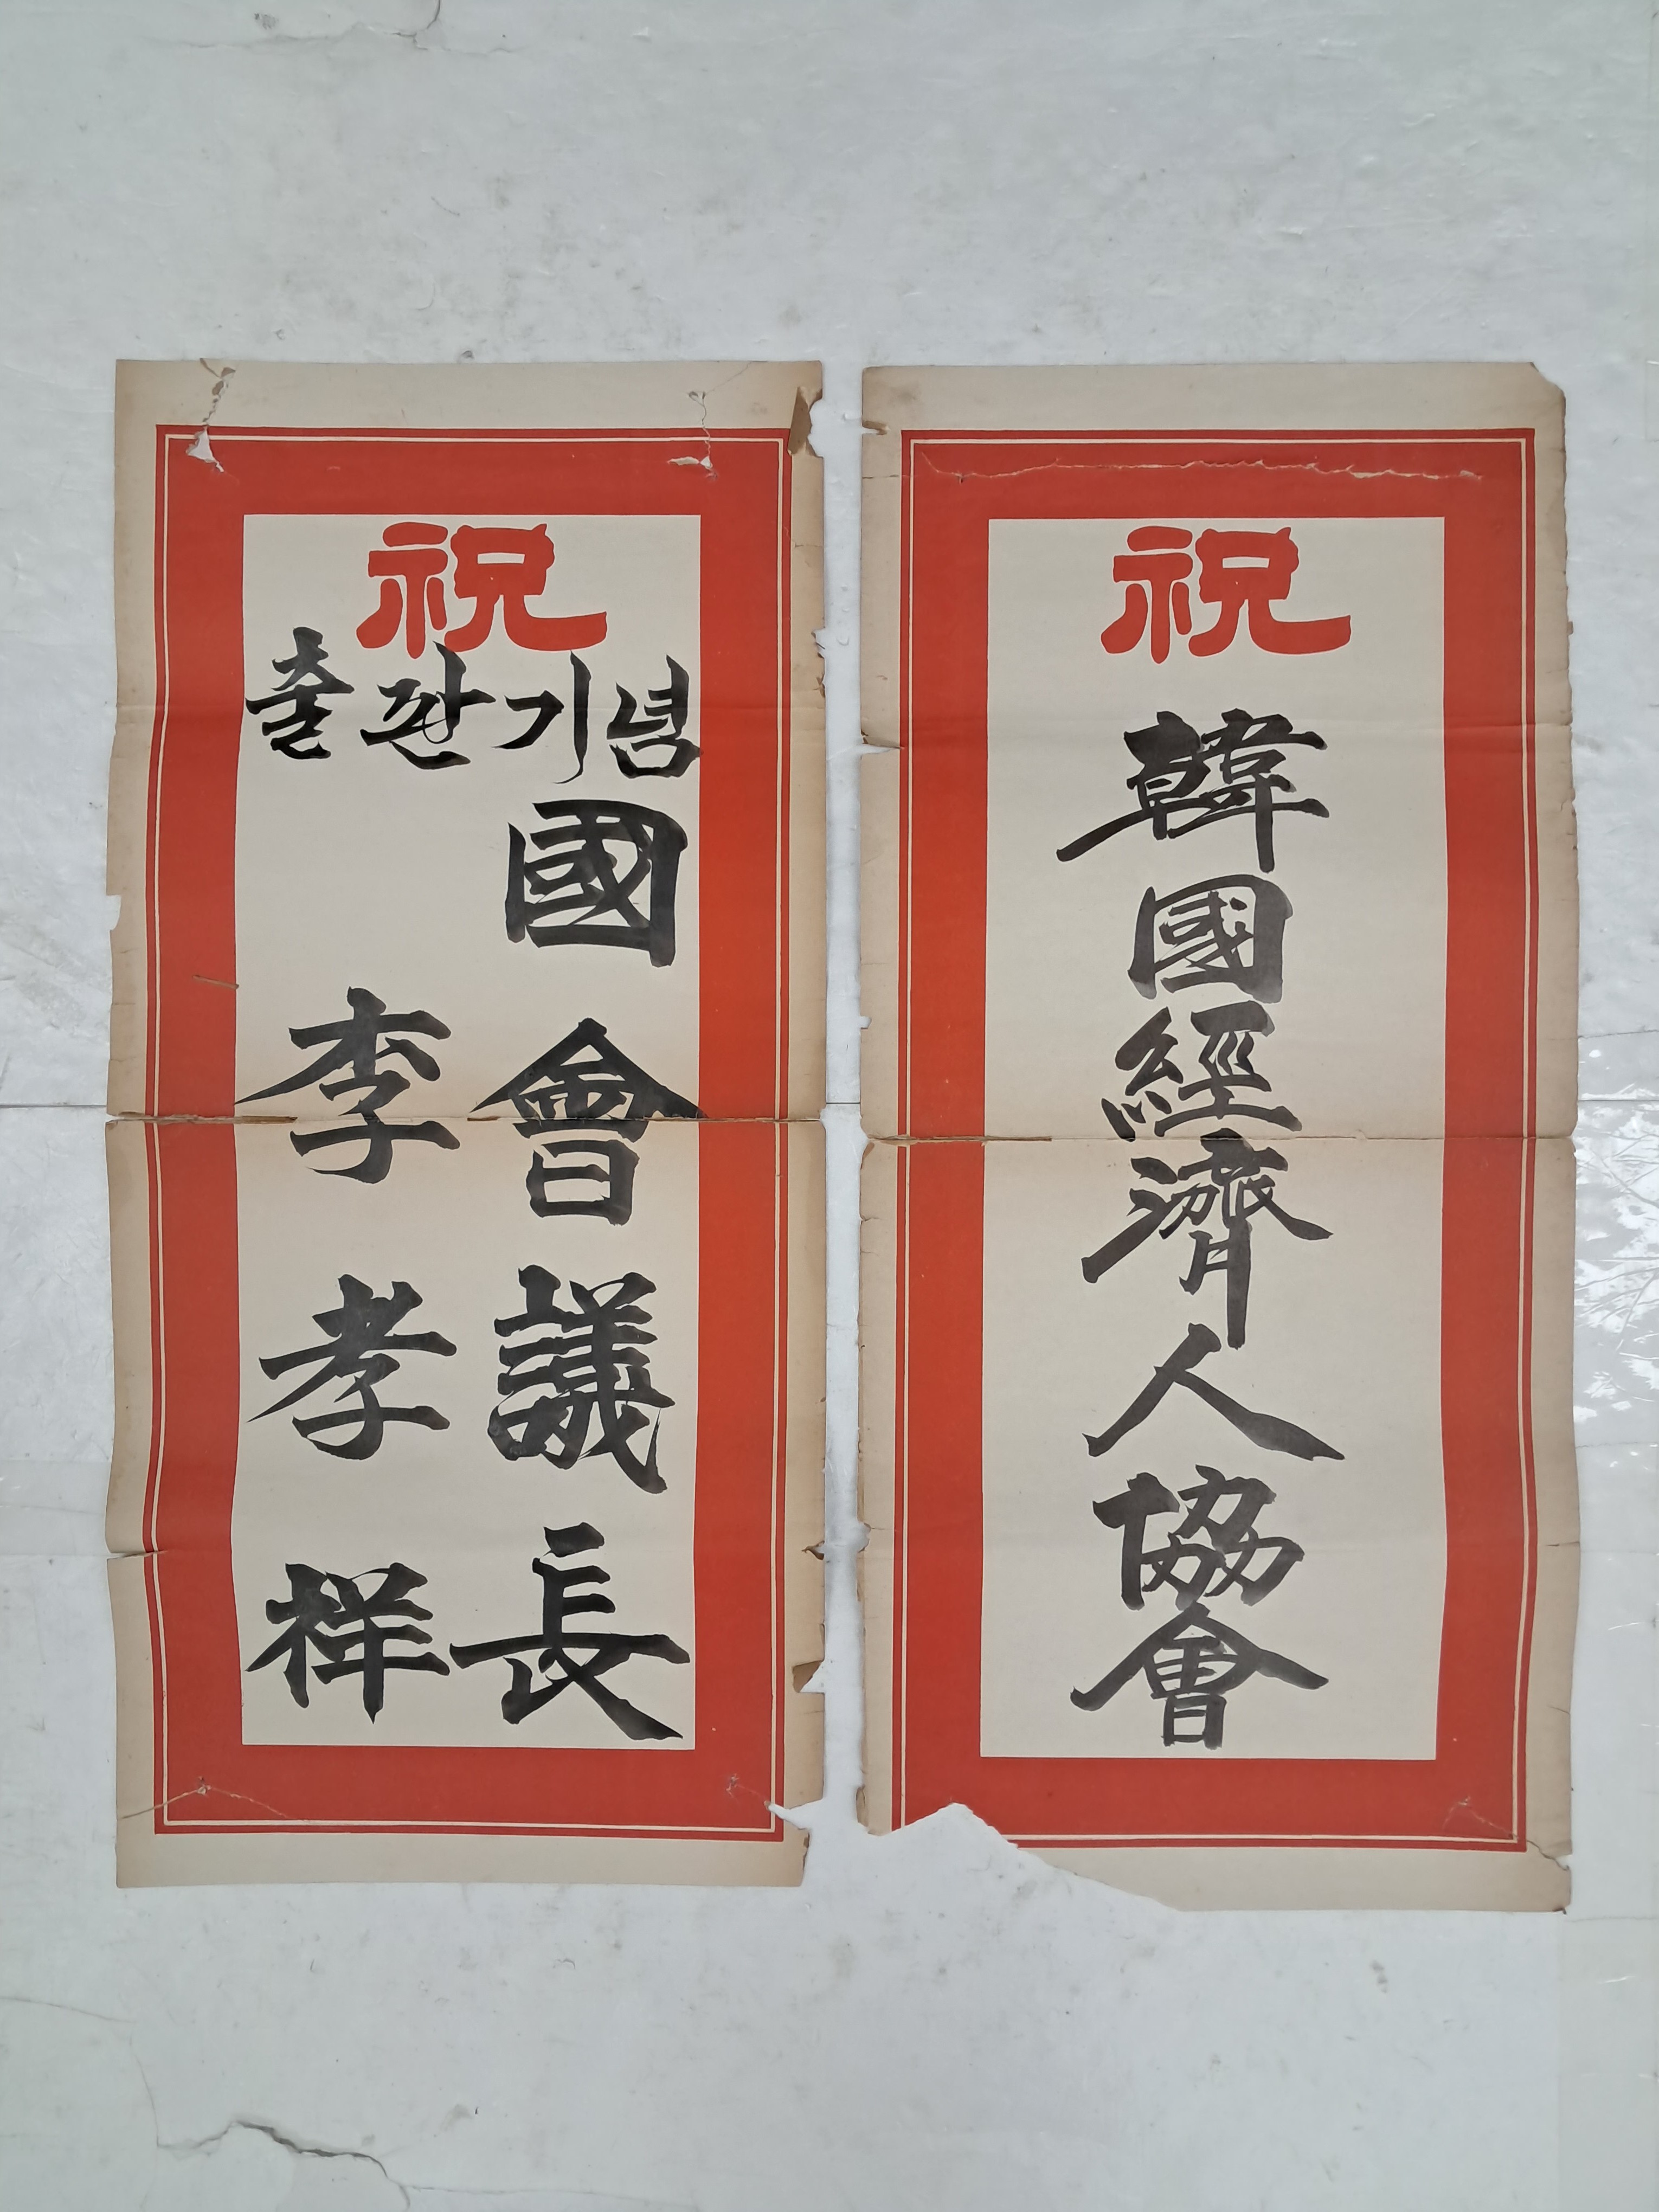 祝
출판기념
國會議長
李孝祥
祝
韓國經濟人協會